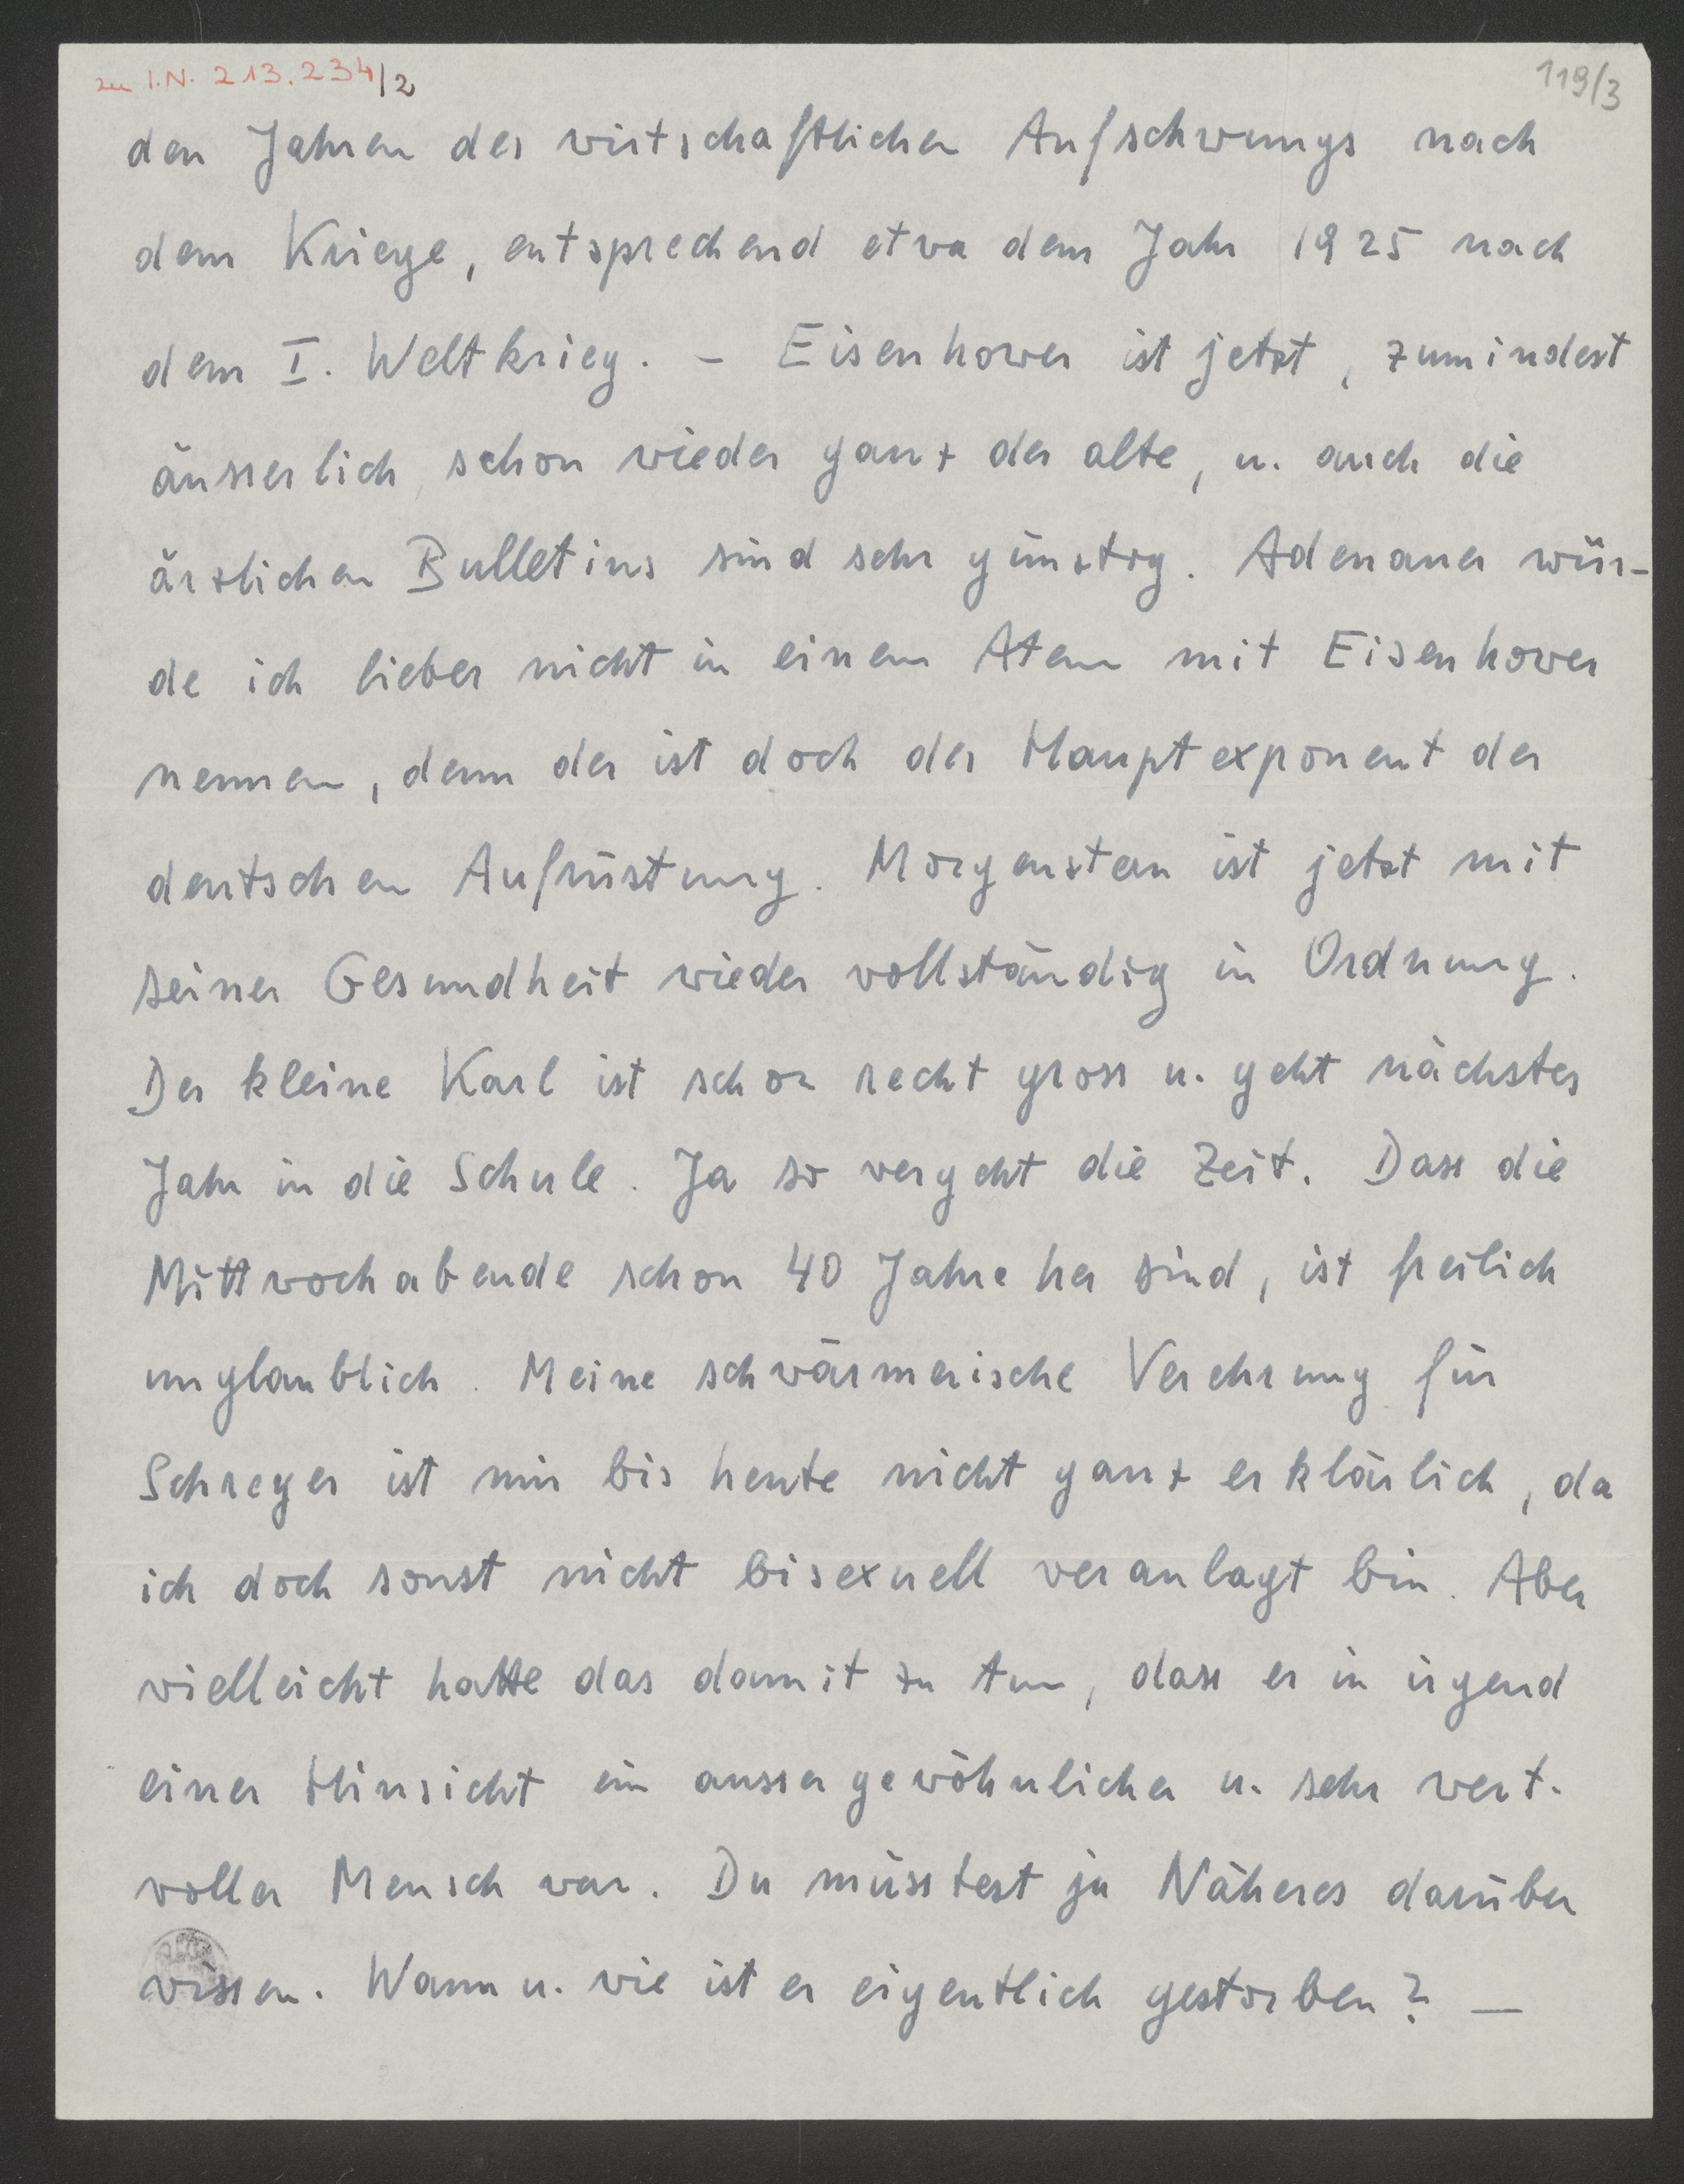 zu I.N. 213.234/2
119/3
den Jahren des wirtschaftlichen Aufschwungs nach
dem Kriege, entsprechend etwa dem Jahr 1925 nach
dem I. Weltkrieg. – Eisenhower ist jetzt, zumindest
äusserlich, schon wieder ganz der alte, u. auch die
ärztlichen Bulletins sind sehr günstig. Adenauer wür-
de ich lieber nicht in einem Atem mit Eisenhower
nennen, denn der ist doch der Hauptexponent der
deutschen Aufrüstung. Morgenstern ist jetzt mit
seiner Gesundheit wieder vollständig in Ordnung.
Der kleine Karl ist schon recht gross u. geht nächstes
Jahr in die Schule. Ja so vergeht die Zeit. Dass die
Mittwochabende schon 40 Jahre her sind, ist freilich
unglaublich. Meine schwärmerische Verehrung für
Schreyer ist mir bis heute nicht ganz erklärlich, da
ich doch sonst nicht bisexuell veranlagt bin. Aber
vielleicht hatte das damit zu tun, dass er in irgend
einer Hinsicht ein aussergewöhnlicher u. sehr wert-
voller Mensch war. Du müsstest ja Näheres darüber
wissen. Wann u. wie ist er eigentlich gestorben? —